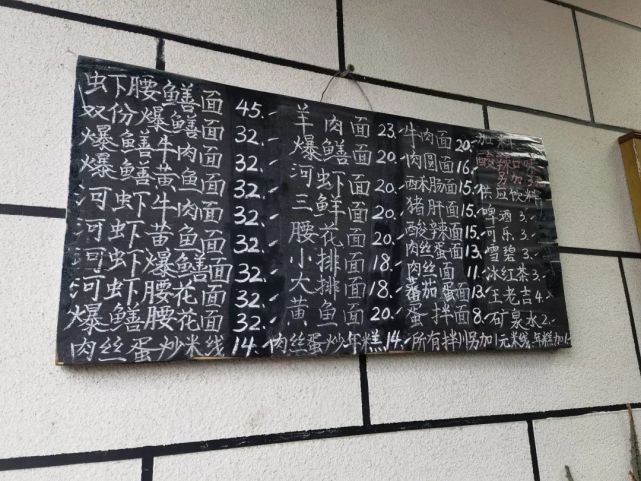 虾腰鳝面 45.-
双份爆鳝面 32.-
爆鳝牛肉面 32.-
爆鳝黄鱼面 32.-
河虾牛肉面 32.-
河虾黄鱼面 32.-
河虾爆鳝面 32.-
河虾腰花面 32.-
爆鳝腰花面 32.-
羊肉面 23.-
爆鳝面 20.-
河虾面 20.-
三鲜面 20.-
腰花面 20.-
小排面 18.-
大排面 18.-
黄鱼面 20.-
牛肉面 20.-
肉圆面 16.-
肠面 15.-
猪肝面 15.-
酸辣面 15.-
肉丝蛋面 13.-
肉丝面 11.-
番茄蛋面
蛋拌面 8.-
酸辣口味
供应饮料
啤酒 3.-
可乐 3.-
雪碧 3.-
冰红茶 3.-
王老吉 4.-
矿泉水 2.-
肉丝蛋炒米线 14.- 肉丝蛋炒年糕 14.- 所有拌川另加1元 米线.年糕加1.-